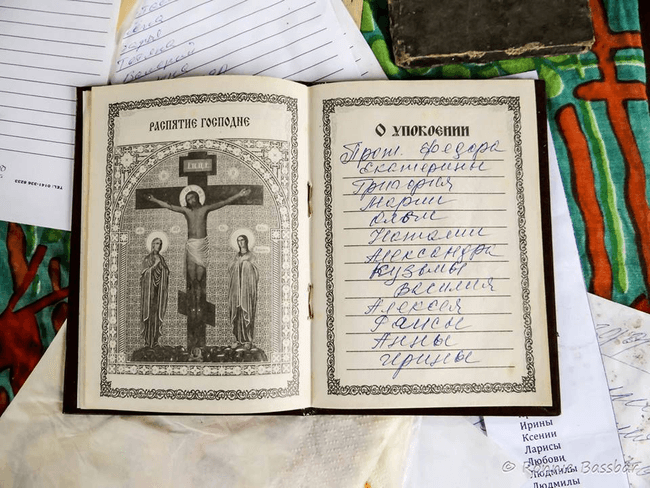 РАСПЯТИЕ ГОСПОДНЕ
О УПОКОЕНИИ
Прот. Федора
Екатерины
Григория
Марии
Ольги
Наталии
Александра
Кузьмы
Василия
Алексея
Раисы
Анны
Ирины
Ирины
Ксении
Ларисы
Любови
Людмилы
Людмилы
© Ronnie Bassbar